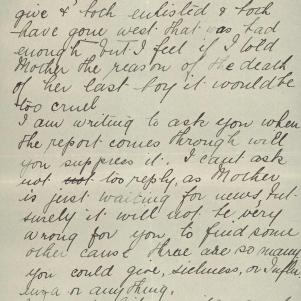 give & both enlisted & both
have gone west that was bad
enough but I feel if I told
Mother the reason of the death
of her last boy it would be
too cruel
I am writing to ask you when
the report comes through will
you suppress it. I cant ask
not not too reply, as Mother
is just waiting for news, but
surely it will not be very
wrong for you to find some
other cause there are so many
you could give, sickness, or Influ
enza or anything.